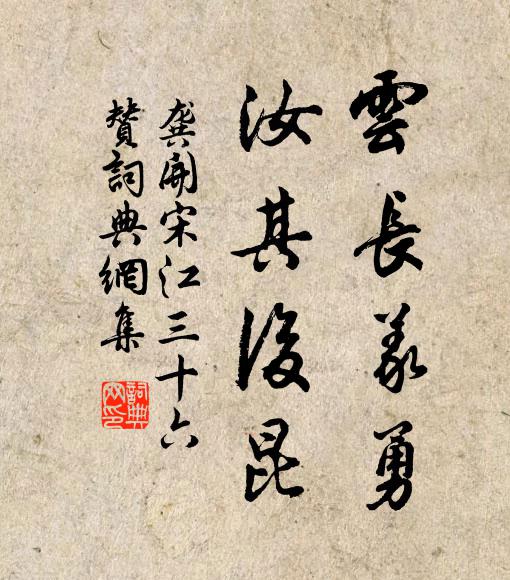 雲長義勇
汝其後昆
龔開宋江三十六
贊詞典網集
詞典網印